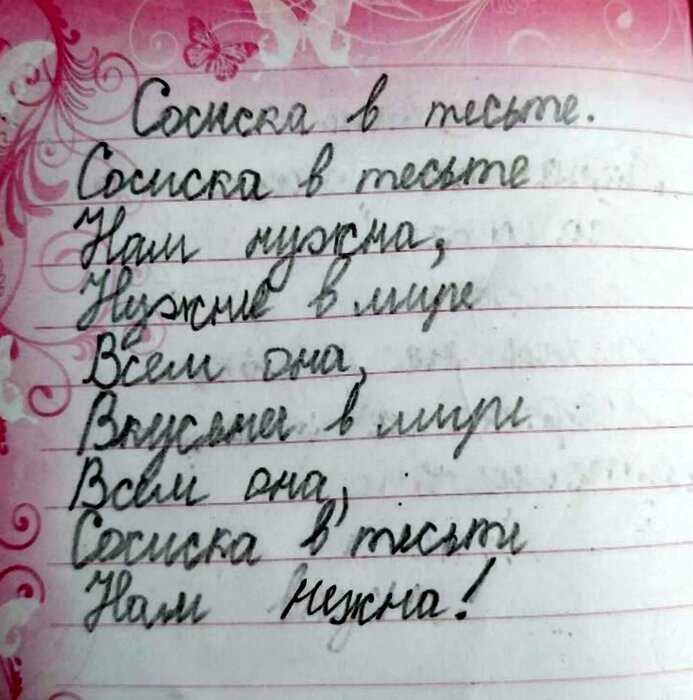 Сосиска в тесьте.
Сосиска в тесьте
Нам нужна,
Нужне в мире
Всем она,
Вкусяней в мире
Всем она,
Сосиска в тесьте
Нам нужна!